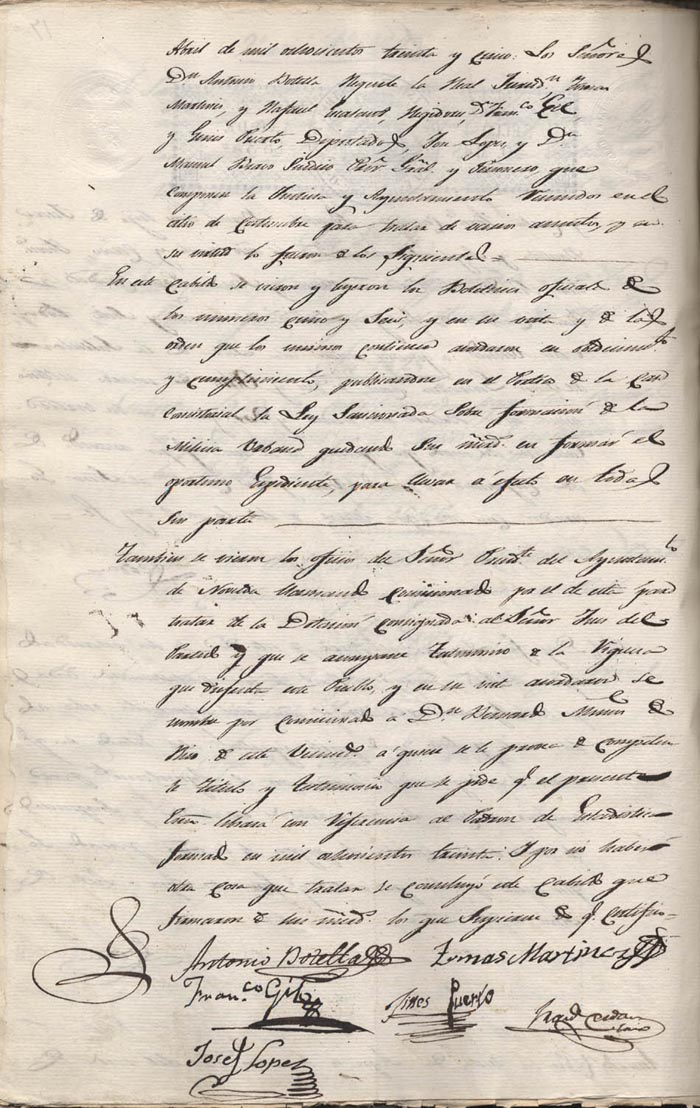 Abril de mil ochocientos treinta y cinco. Los Señores
Dn Antonio Botella Regente la Real Jurisdn Tomas
Martinez, y Rafael Regidores, Dn Franco Gil,
y Gines Puerto, Diputados, Jose Lopez, y Dn
Manuel Bravo Sindico Procr Gral y que
componen la Justicia y Ayuntamiento reunidos en el
sitio de costumbre para tratar de varios asuntos, y en
su virtud lo fueron de los Siguientes =
En este Cabildo se vieron y leyeron los Boletines oficiales de
los numeros cinco y Seis, y en su vista y de las
orden que los mismos contienen acordaron su obedecimto
y cumplimiento, publicandose en el de la Casa
Consistorial la Ley Sancionada Sobre formacion de la
Milicia Urbana quedando Sus mrcds en formar el
oportuno Expediente, para llevar á efecto en todas
Sus partes
Tambien se vieron los oficios del Señor Presidte del Ayuntamto
de Novelda comisionado por el de esta para
tratar de la Dotacion consignada al Señor Jues del
Partido y que se acompañe Testimonio de la Riqueza
que disfruta este Pueblo, y en su vista acordaron se
nombre por comisionado a Dn Bernardo de
de este Vecindo a quien se le provea de competen
te Titulo y Testimonio que se pide qe el presente
Esno librará con referencia al Padron de Estadistica
formado en mil ochocientos treinta. Y por no haber
otra cosa que tratar se concluyó este Cabildo que
firmaron de sus mrcds los que Supieron de qe certifico =
Antonio Botella
Tomas Martinez
Franco Gil
Gines Puerto
Josef Lopez